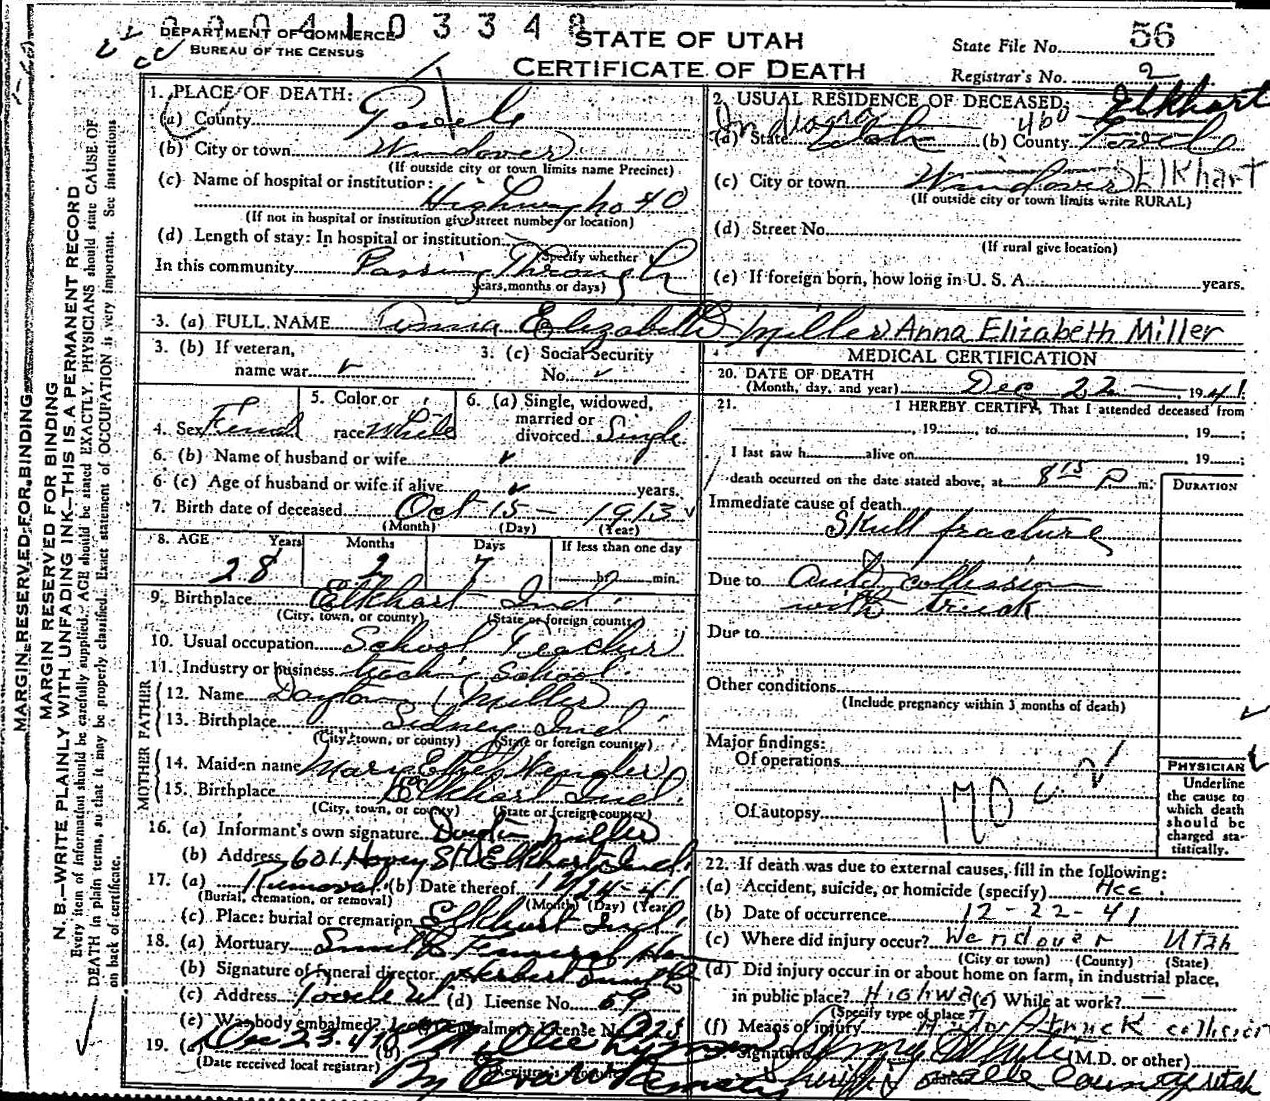 0 0 0 4 1 0 3 3 4 8
DEPARTMENT OF COMMERCE
BUREAU OF THE CENSUS
STATE OF UTAH
CERTIFICATE OF DEATH
State File No. 56
Registrar's No. 2
MARGIN RESERVED FOR BINDING
MARGIN RESERVED FOR BINDING
N. B.—WRITE PLAINLY WITH UNFADING INK—THIS IS A PERMANENT RECORD
Every item of information should be carefully supplied. AGE should be stated EXACTLY. PHYSICIANS should state CAUSE OF
DEATH in plain terms, so that it may be properly classified. Exact statement of OCCUPATION is very important. See instructions
on back of certificate.
1. PLACE OF DEATH:
(a) County Tooele
(b) City or town Wendover
(If outside city or town limits name Precinct)
(c) Name of hospital or institution:
Highway no 40
(If not in hospital or institution give street number or location)
(d) Length of stay: In hospital or institution
(Specify whether
In this community Passing Through
years, months or days)
2. USUAL RESIDENCE OF DECEASED: Elkhart
Indiana 460
(a) State Utah (b) County Tooele
(c) City or town Wendover Elkhart
(If outside city or town limits write RURAL)
(d) Street No.
(If rural give location)
(e) If foreign born, how long in U. S. A. years.
3. (a) FULL NAME Anna Elizabeth Miller Anna Elizabeth Miller
3. (b) If veteran,
name war
3. (c) Social Security
No.
4. Sex Femal
5. Color or
race White
6. (a) Single, widowed,
married or
divorced Single
6. (b) Name of husband or wife
6 (c) Age of husband or wife if alive years.
7. Birth date of deceased Oct 15 - 1913
(Month) (Day) (Year)
8. AGE Years Months Days If less than one day
28 2 7 hr. min.
9. Birthplace Elkhart Ind.
(City, town, or county) (State or foreign country)
10. Usual occupation School Teacher
11. Industry or business teaching School
FATHER
12. Name Dayton Miller
13. Birthplace Sidney Ind.
(City, town, or county) (State or foreign country)
MOTHER
14. Maiden name Mary
15. Birthplace Elkhart Ind.
(City, town, or county) (State or foreign country)
16. (a) Informant's own signature Miller
(b) Address 601 St. Elkhart Ind.
17. (a) Removal (b) Date thereof 12/24-41
(Burial, cremation, or removal) (Month) (Day) (Year)
(c) Place: burial or cremation Elkhart Ind.
18. (a) Mortuary Funeral Home
(b) Signature of funeral director Herbert
(c) Address Tooele Ut (d) License No. 69
(e) Was body embalmed? Embalmer's License No.
19. (a) Dec 23-41 (b)
(Date received local registrar) Registrar's signature
By
MEDICAL CERTIFICATION
20. DATE OF DEATH
(Month, day, and year) Dec 22 - 1941
21. I HEREBY CERTIFY, That I attended deceased from
, 19 , to , 19 ;
I last saw h alive on 19 ;
death occurred on the date stated above, at 8 15 P m.
DURATION
Immediate cause of death
Skull fracture
Due to Auto collission
with truck
Due to
Other conditions
(Include pregnancy within 3 months of death)
Major findings:
Of operations
Of autopsy
170 c
PHYSICIAN
Underline
the cause to
which death
should be
charged sta-
tistically.
22. If death was due to external causes, fill in the following:
(a) Accident, suicide, or homicide (specify) Acc.
(b) Date of occurrence 12-22-41
(c) Where did injury occur? Wendover Utah
(City or town) (County) (State)
(d) Did injury occur in or about home on farm, in industrial place,
in public place? Highway (e) While at work? —
(Specify type of place)
(f) Means of injury Auto truck collision
Signature (M.D. or other)
Sheriff Tooele County Utah